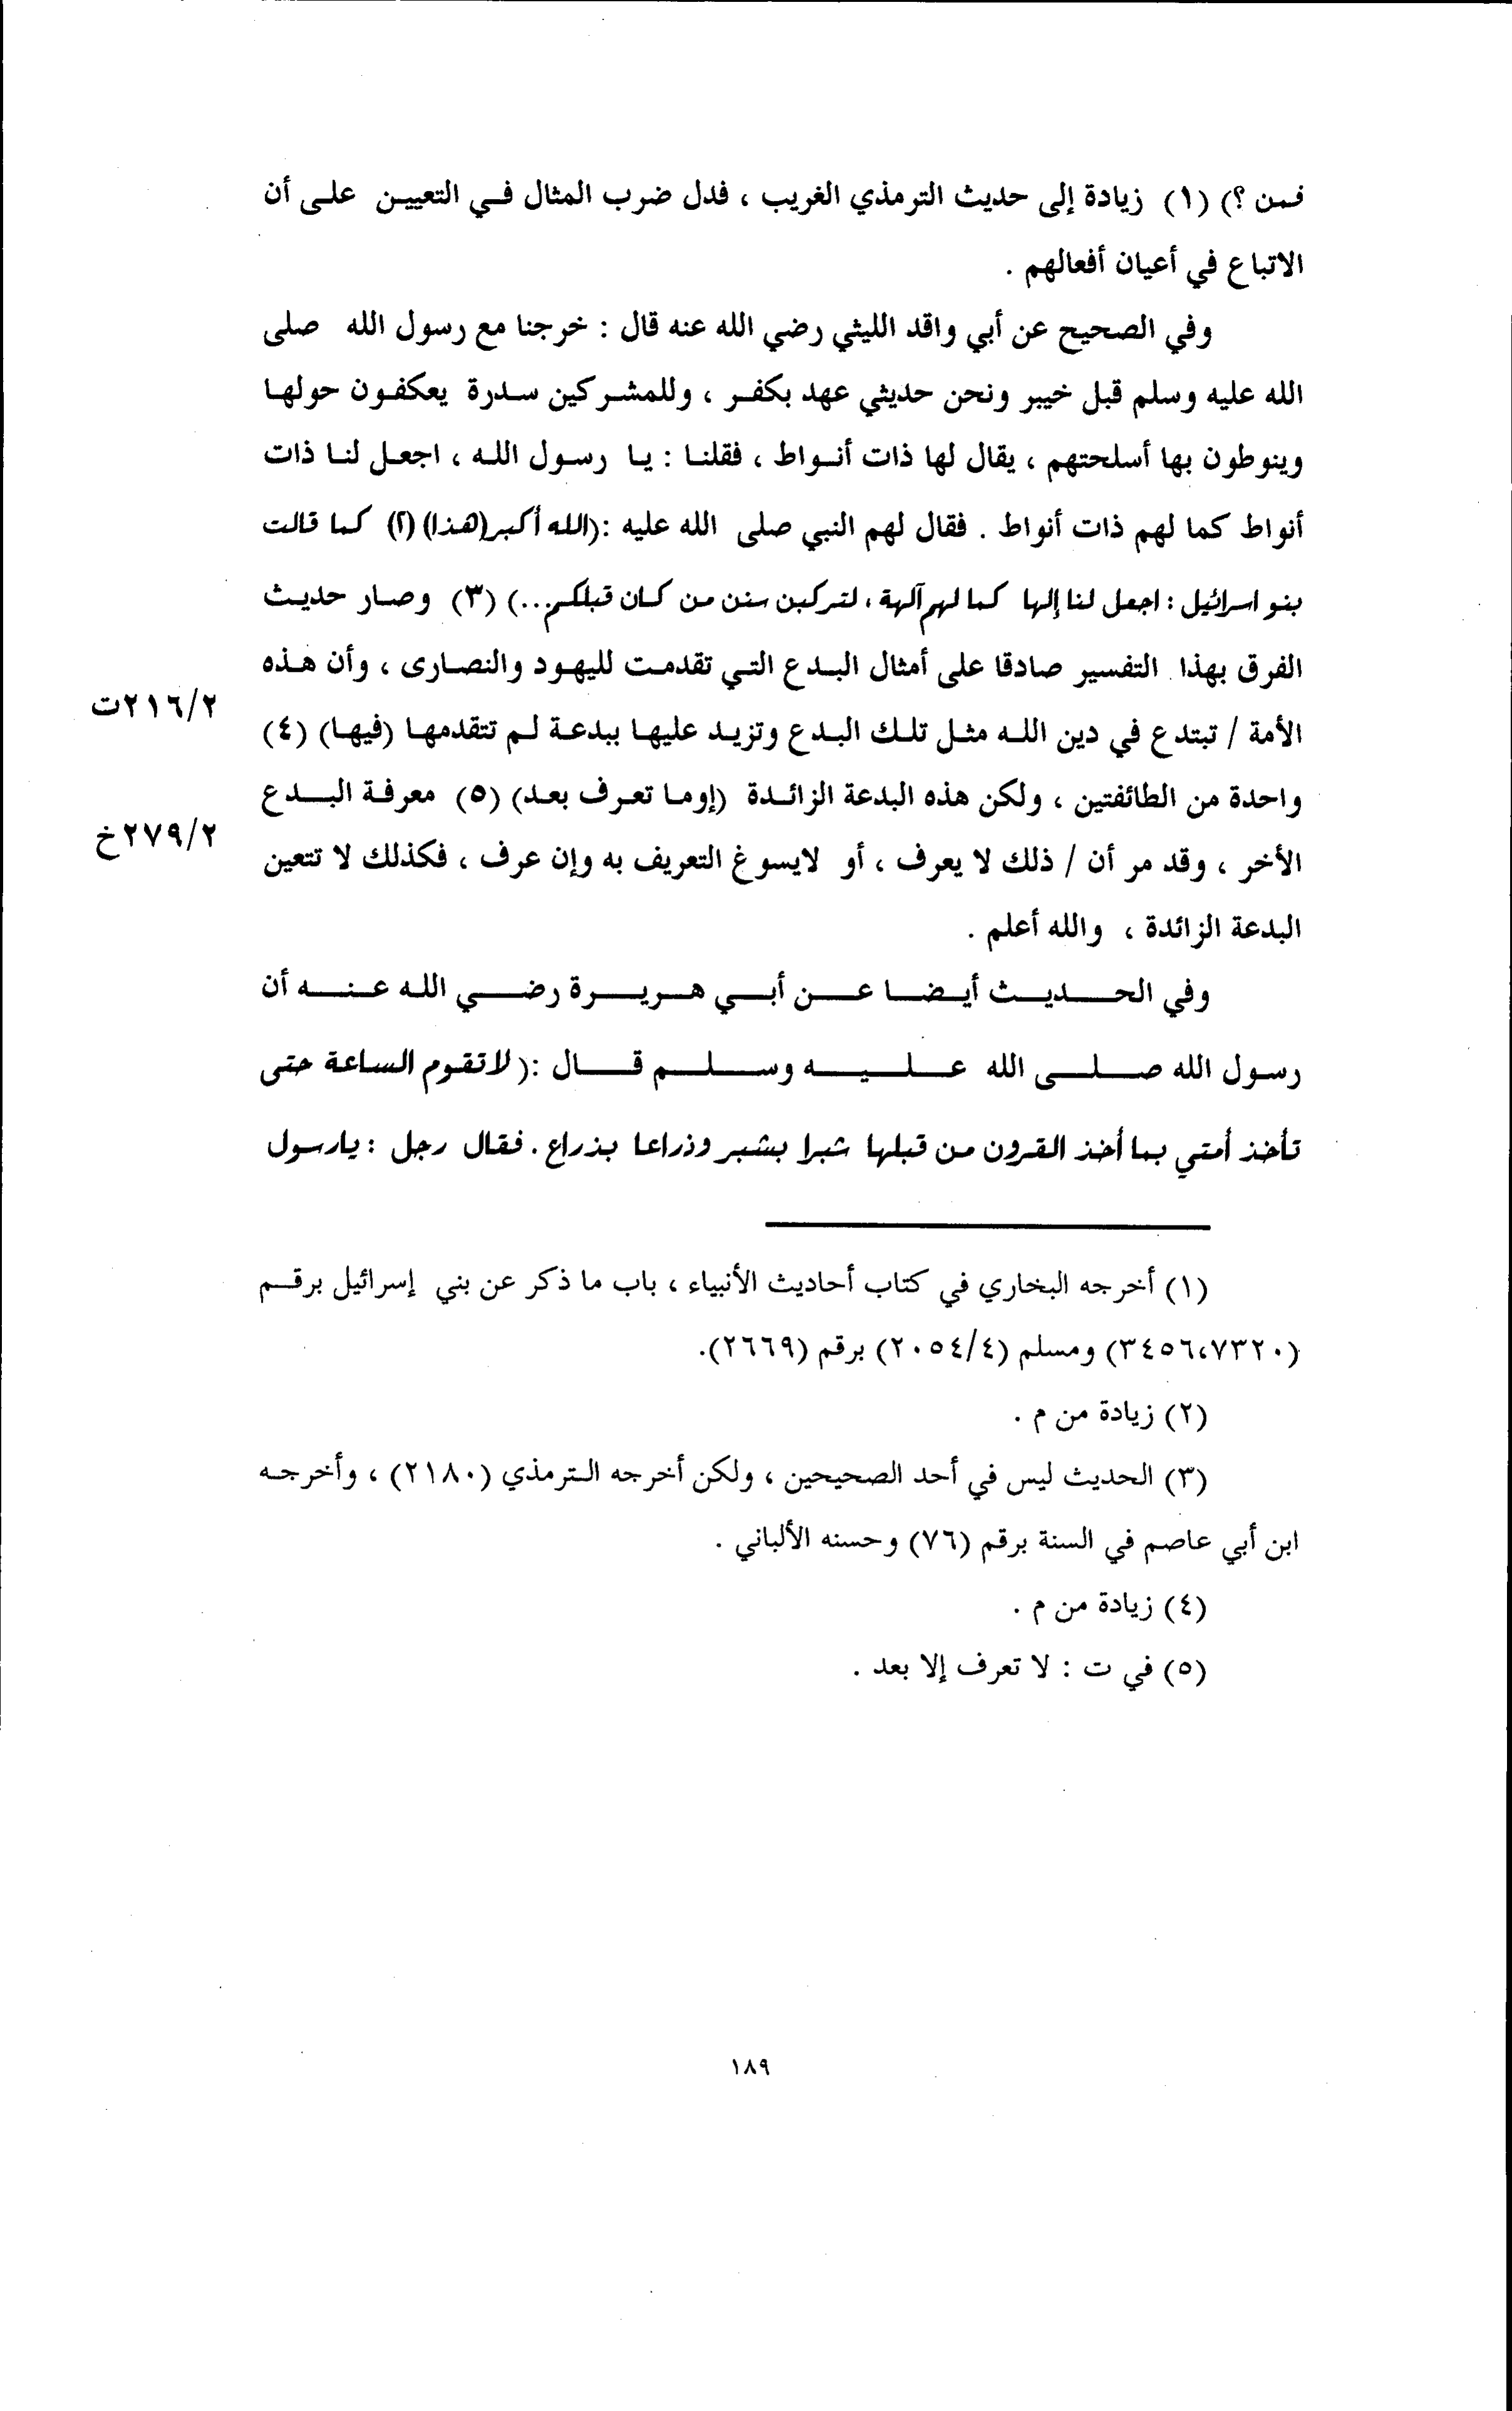 فمن ؟) (١) زيادة إلى حديث الترمذي الغريب ، فدل ضرب المثال في التعيين على أن
الاتباع في أعيان أفعالهم .
وفي الصحيح عن أبي واقد الليثي رضي الله عنه قال : خرجنا مع رسول الله صلى
الله عليه وسلم قبل خيبر ونحن حديثي عهد بكفر ، وللمشركين سدرة يعكفون حولها
وينوطون بها أسلحتهم ، يقال لها ذات أنواط ، فقلنا : يا رسول الله ، اجعل لنا ذات
أنواط كما لهم ذات أنواط . فقال لهم النبي صلى الله عليه :(الله أكبر(هذا) (٢) كما قالت
بنو اسرائيل : اجعل لنا إلها كما لهم آلهة ، لتركبن سنن من كان قبلكم...) (٣) وصار حديث
الفرق بهذا التفسير صادقا على أمثال البدع التي تقدمت لليهود والنصارى ، وأن هذه
٢١٦/٢ت
الأمة / تبتدع في دين الله مثل تلك البدع وتزيد عليها ببدعة لم تتقدمها (فيها) (٤)
واحدة من الطائفتين ، ولكن هذه البدعة الزائدة (إوما تعرف بعد) (٥) معرفة البدع
٢٧٩/٢خ
الأخر ، وقد مر أن / ذلك لا يعرف ، أو لايسوغ التعريف به وإن عرف ، فكذلك لا تتعين
البدعة الزائدة ، والله أعلم .
وفي الحديث أيضا عن أبي هريرة رضي الله عنه أن
رسول الله صلى الله عليه وسلم قال :(لاتقوم الساعة حتى
تأخذ أمتي بما أخذ القرون من قبلها شبرا بشبر وذراعا بذراع . فقال رجل : يارسول
(١) أخرجه البخاري في كتاب أحاديث الأنبياء ، باب ما ذكر عن بني إسرائيل برقم
(٣٤٥٦،٧٣٢٠) ومسلم (٢٠٥٤/٤) برقم (٢٦٦٩).
(٢) زيادة من م .
(٣) الحديث ليس في أحد الصحيحين ، ولكن أخرجه الترمذي (٢١٨٠) ، وأخرجه
ابن أبي عاصم في السنة برقم (٧٦) وحسنه الألباني .
(٤) زيادة من م .
(٥) في ت : لا تعرف إلا بعد .
١٨٩